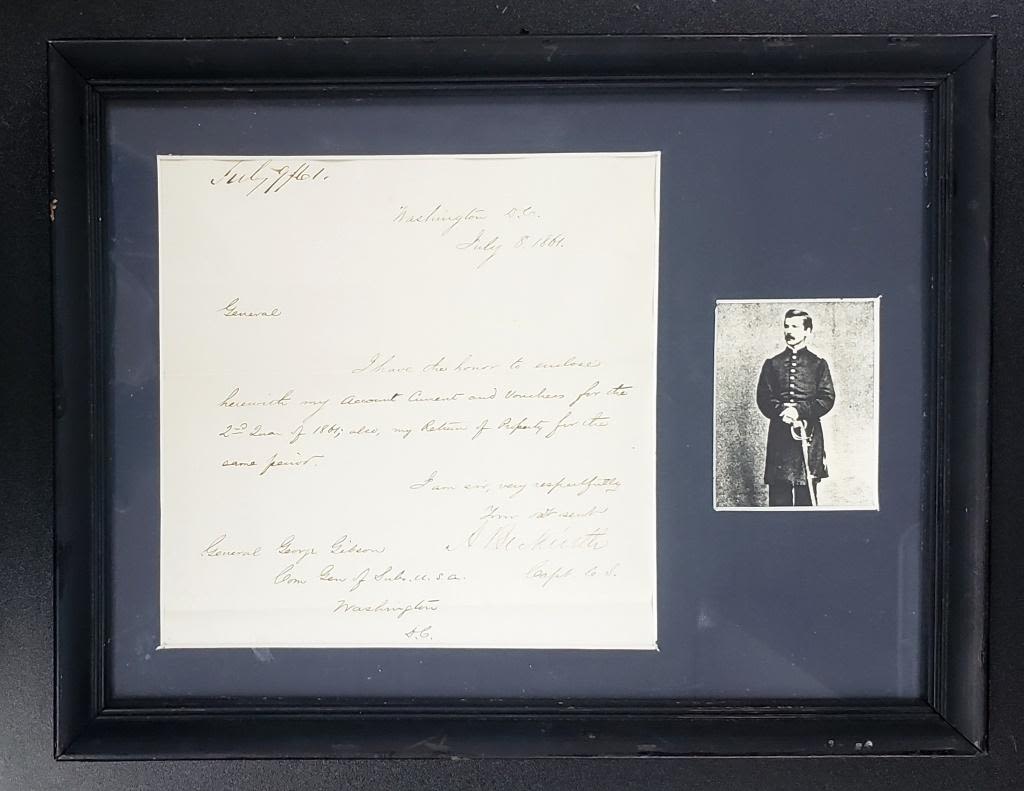 July 9/61.
Washington D.C.
July 8, 1861.
General
I have the honor to enclose
herewith my Account Current and Vouchers for the
2nd Quar of 1861; also, my Return of Property for the
same period.
I am sir, very respectfully
Your obt servt
General George Gibson
Com Gen of Subs. U.S.A.
Capt C.S.
Washington
D.C.